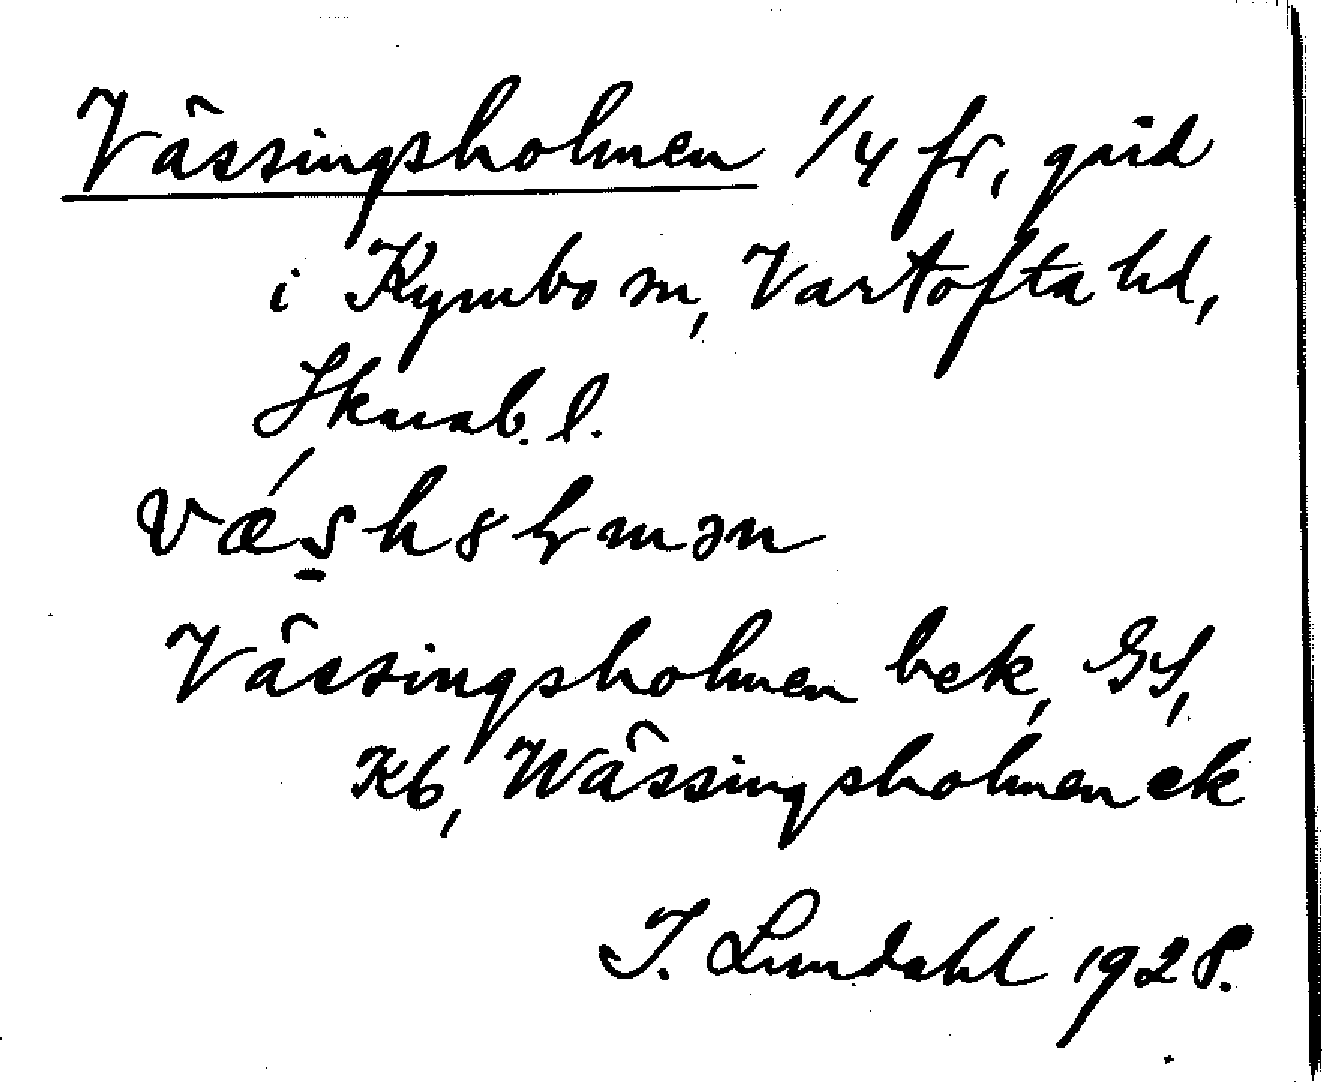 Vässingsholmen 1/4 fr, gård
i Kymbo sn, Vartofta hd,
Skarab. l.
Vässingsholmen bek, GS,
Kb, Wässingsholmen ek
I. Lundahl 1928.